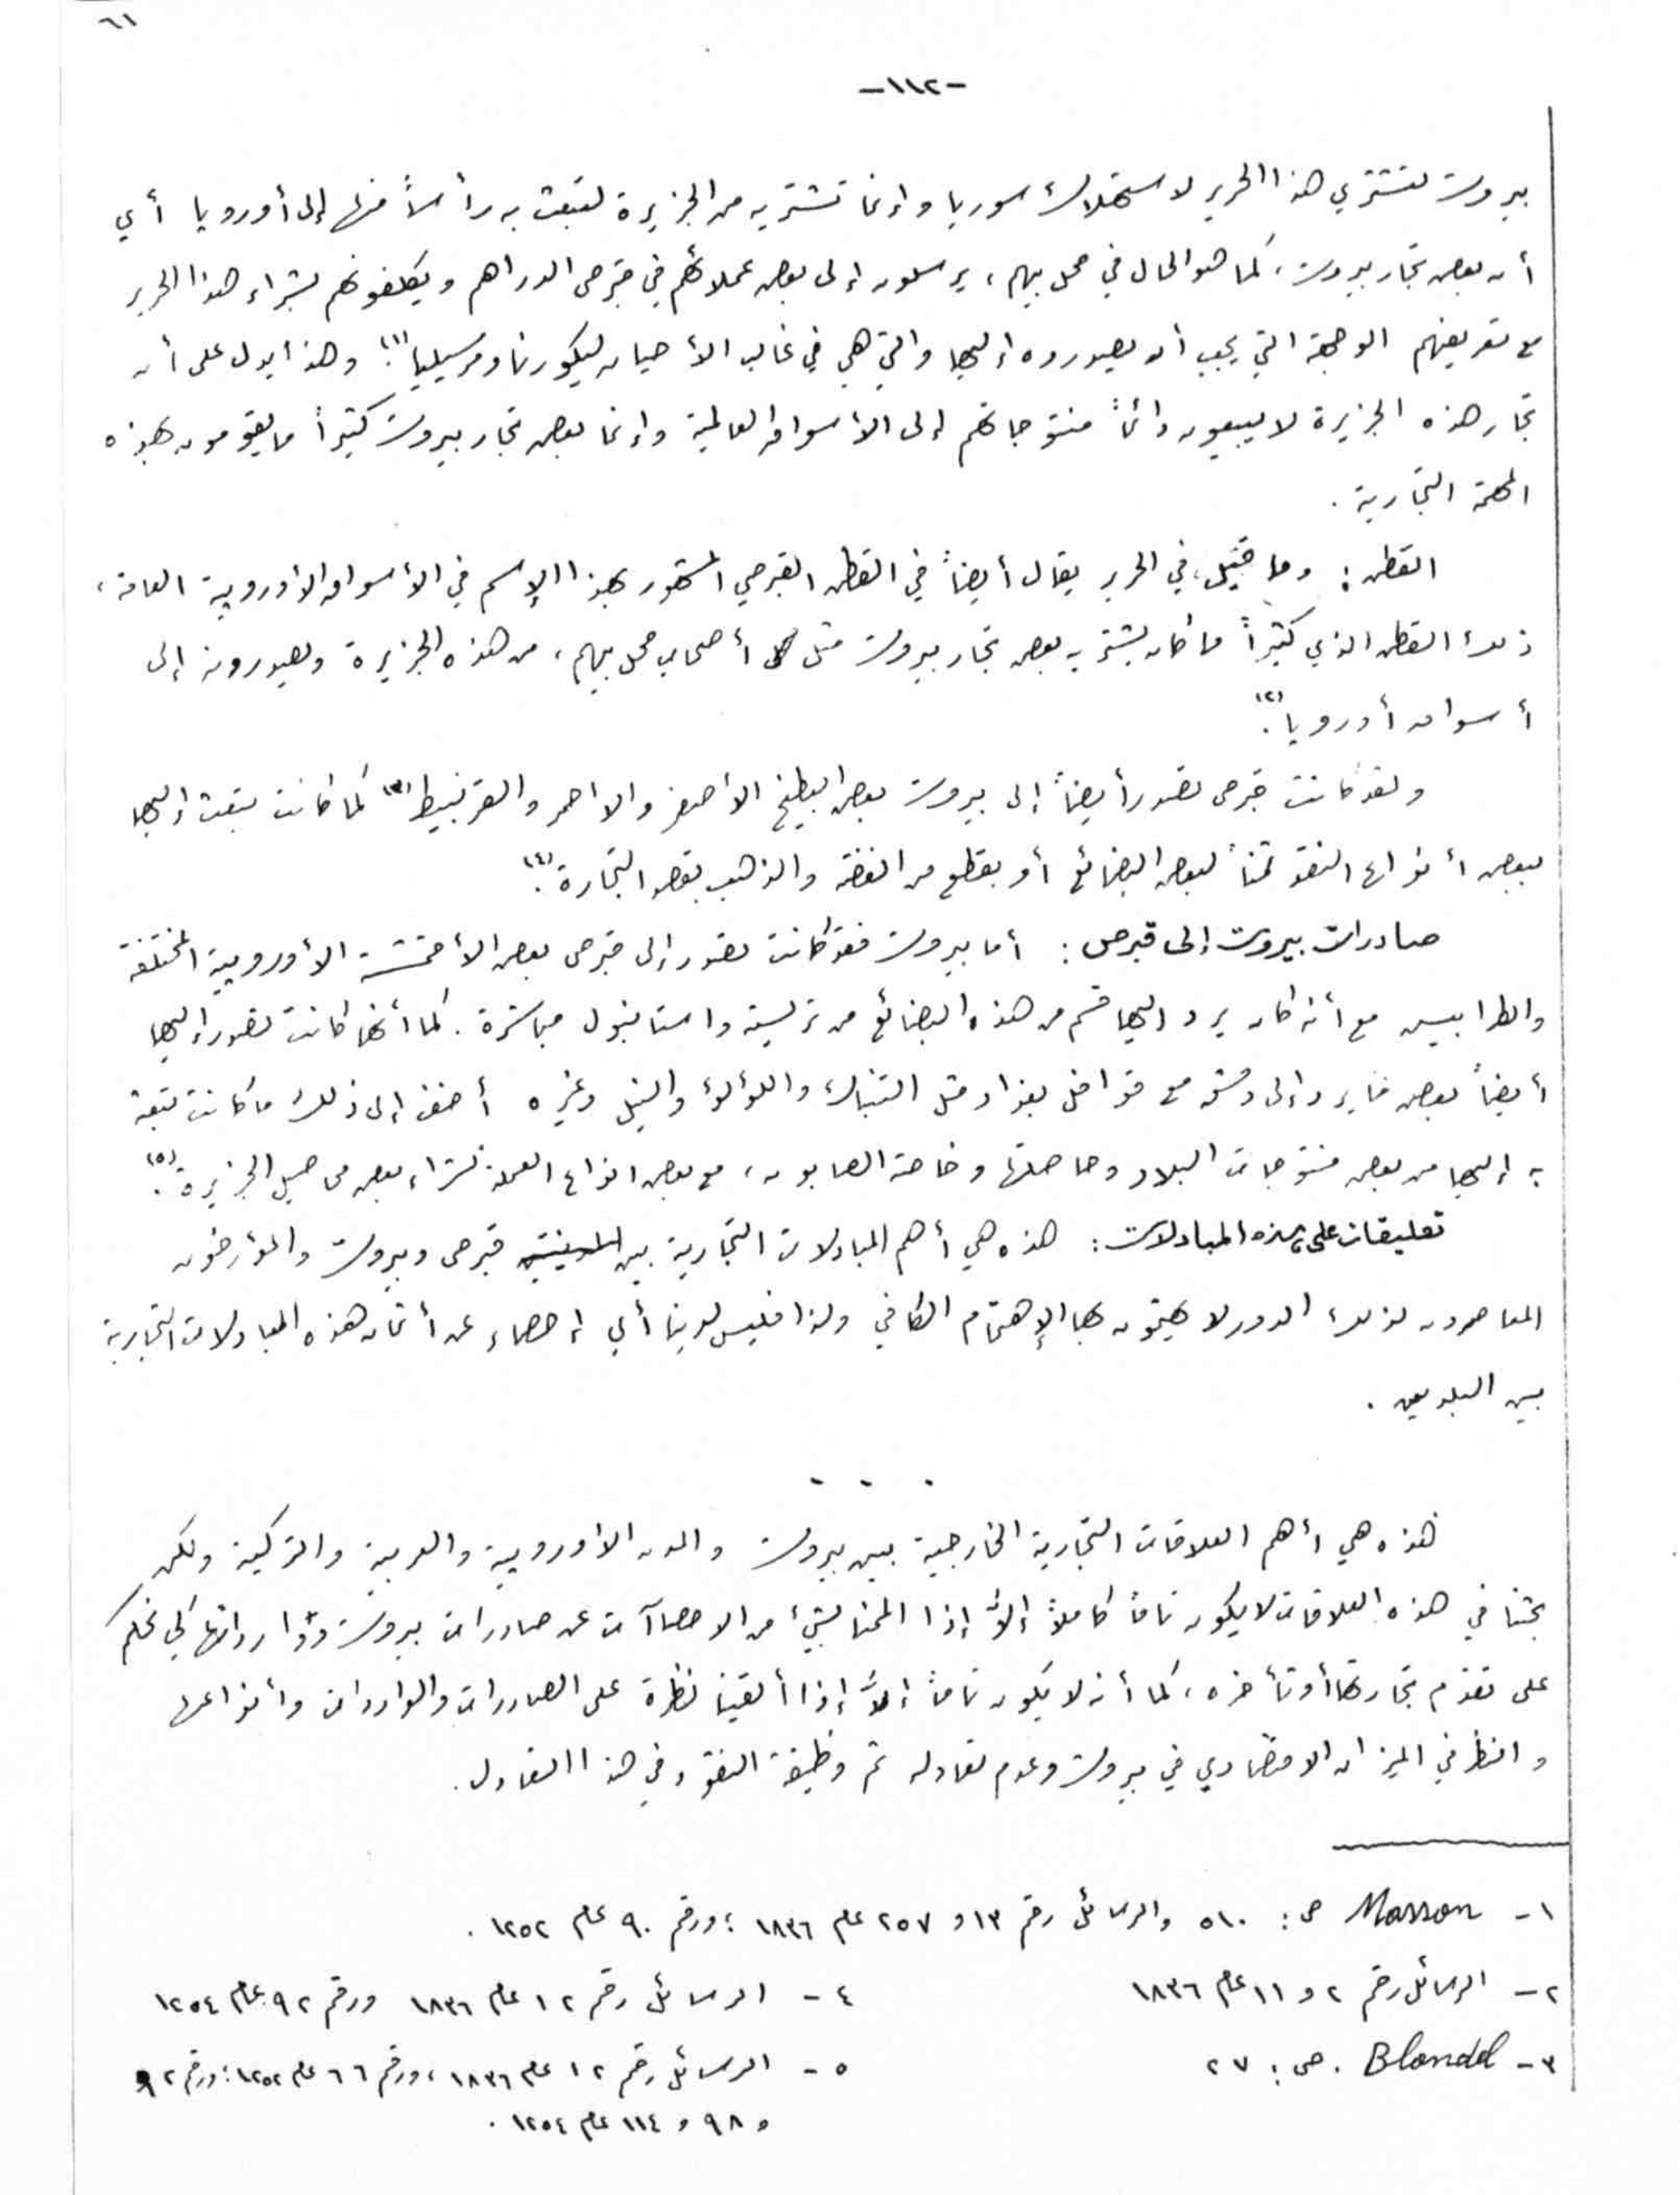 ٦١
-١١٢-
بيروت لتشتري هذا الحرير لاستهلاك سوريا وإنما تشتريه من الجزيرة لتبعث به رأساً منها إلى أوروبا أي
أن بعض تجار بيروت، كما هو الحال في محل بيهم، يرسلون إلى بعض عملائهم في قبرص الدراهم ويكلفونهم بشراء هذا الحرير
مع تعريفهم الوجهة التي يجب أن يصدروه إليها والتي هي في غالب الأحيان ليكورنا ومرسيليا(١). وهذا يدل على أن
تجار هذه الجزيرة لا يبيعون دائماً منتوجاتهم إلى الأسواق العالمية وإنما بعض تجار بيروت كثيراً ما يقومون بهذه
المهمة التجارية.
القطن: وما قيل في الحرير يقال أيضاً في القطن القبرصي المشهور بهذا الإسم في الأسواق الأوروبية العامة،
ذلك القطن الذي كثيراً ما كان يشتريه بعض تجار بيروت مثل أصحاب محل بيهم، من هذه الجزيرة ويصدرونه إلى
أسواق أوروبا(٢).
ولقد كانت قبرص تصدر أيضاً إلى بيروت بعض البطيخ الأصفر والاحمر والقرنبيط(٣) كما كانت تبعث إليها
ببعض أنواع النقد ثمناً لبعض البضائع أو بقطع من الفضة والذهب بقصد التجارة(٤).
صادرات بيروت إلى قبرص: أما بيروت فقد كانت تصدر إلى قبرص بعض الأقمشة الأوروبية المختلفة
والطرابيش مع أنه كان يرد إليها قسم من هذه البضائع من تريسته واستانبول مباشرة. كما أنها كانت تصدر إليها
أيضاً بعض ما يرد إلى دمشق مع قوافل بغداد مثل التنباك واللؤلؤ والنيل وغيره أضف إلى ذلك ما كانت تبعث
به إليها من بعض منتوجات البلاد وحاصلاتها وخاصة الصابون، مع بعض انواع العملة لشراء بعض محاصيل الجزيرة(٥).
تعليقات على هذه المبادلات: هذه هي أهم المبادلات التجارية بين المدينتين قبرص وبيروت والمؤرخون
المعاصرون لذلك الدور لا يهتمون بها الإهتمام الكافي ولذا فليس لدينا أي إحصاء عن أثمان هذه المبادلات التجارية
بين البلدين.
. . .
هذه هي أهم العلاقات التجارية الخارجية بين بيروت والمدن الأوروبية والعربية والتركية ولكن
بحثنا في هذه العلاقات لا يكون تاماً كاملاً إلاَّ إذا ألمحنا بشيء من الاحصاآت عن صادرات بيروت ووارداتها كي نحكم
على تقدّم تجارتها أو تأخره، كما أنه لا يكون تاماً إلاَّ إذا ألقينا نظرة على الصادرات والواردات وأنواعها
والنظر في الميزان الاقتصادي في بيروت وعدم تعادله ثم وظيفة النقود في هذا التعادل.
١- Masson ص: ٥١٠ والرسائل رقم ١٣ و ٢٥٧ عام ١٨٣٦؛ ورقم ٩٠ عام ١٢٥٢.
٢- الرسائل رقم ٢ و ١١ عام ١٨٣٦
٣- Blondel. ص: ٢٧
٤- الرسائل رقم ١٢ عام ١٨٣٦ ورقم ٩٢ عام ١٢٥٤
٥- الرسائل رقم ١٢ عام ١٨٣٦، ورقم ٦٦ عام ١٢٥٢؛ ورقم ٩٢
و ٩٨ و ١١٤ عام ١٢٥٤.